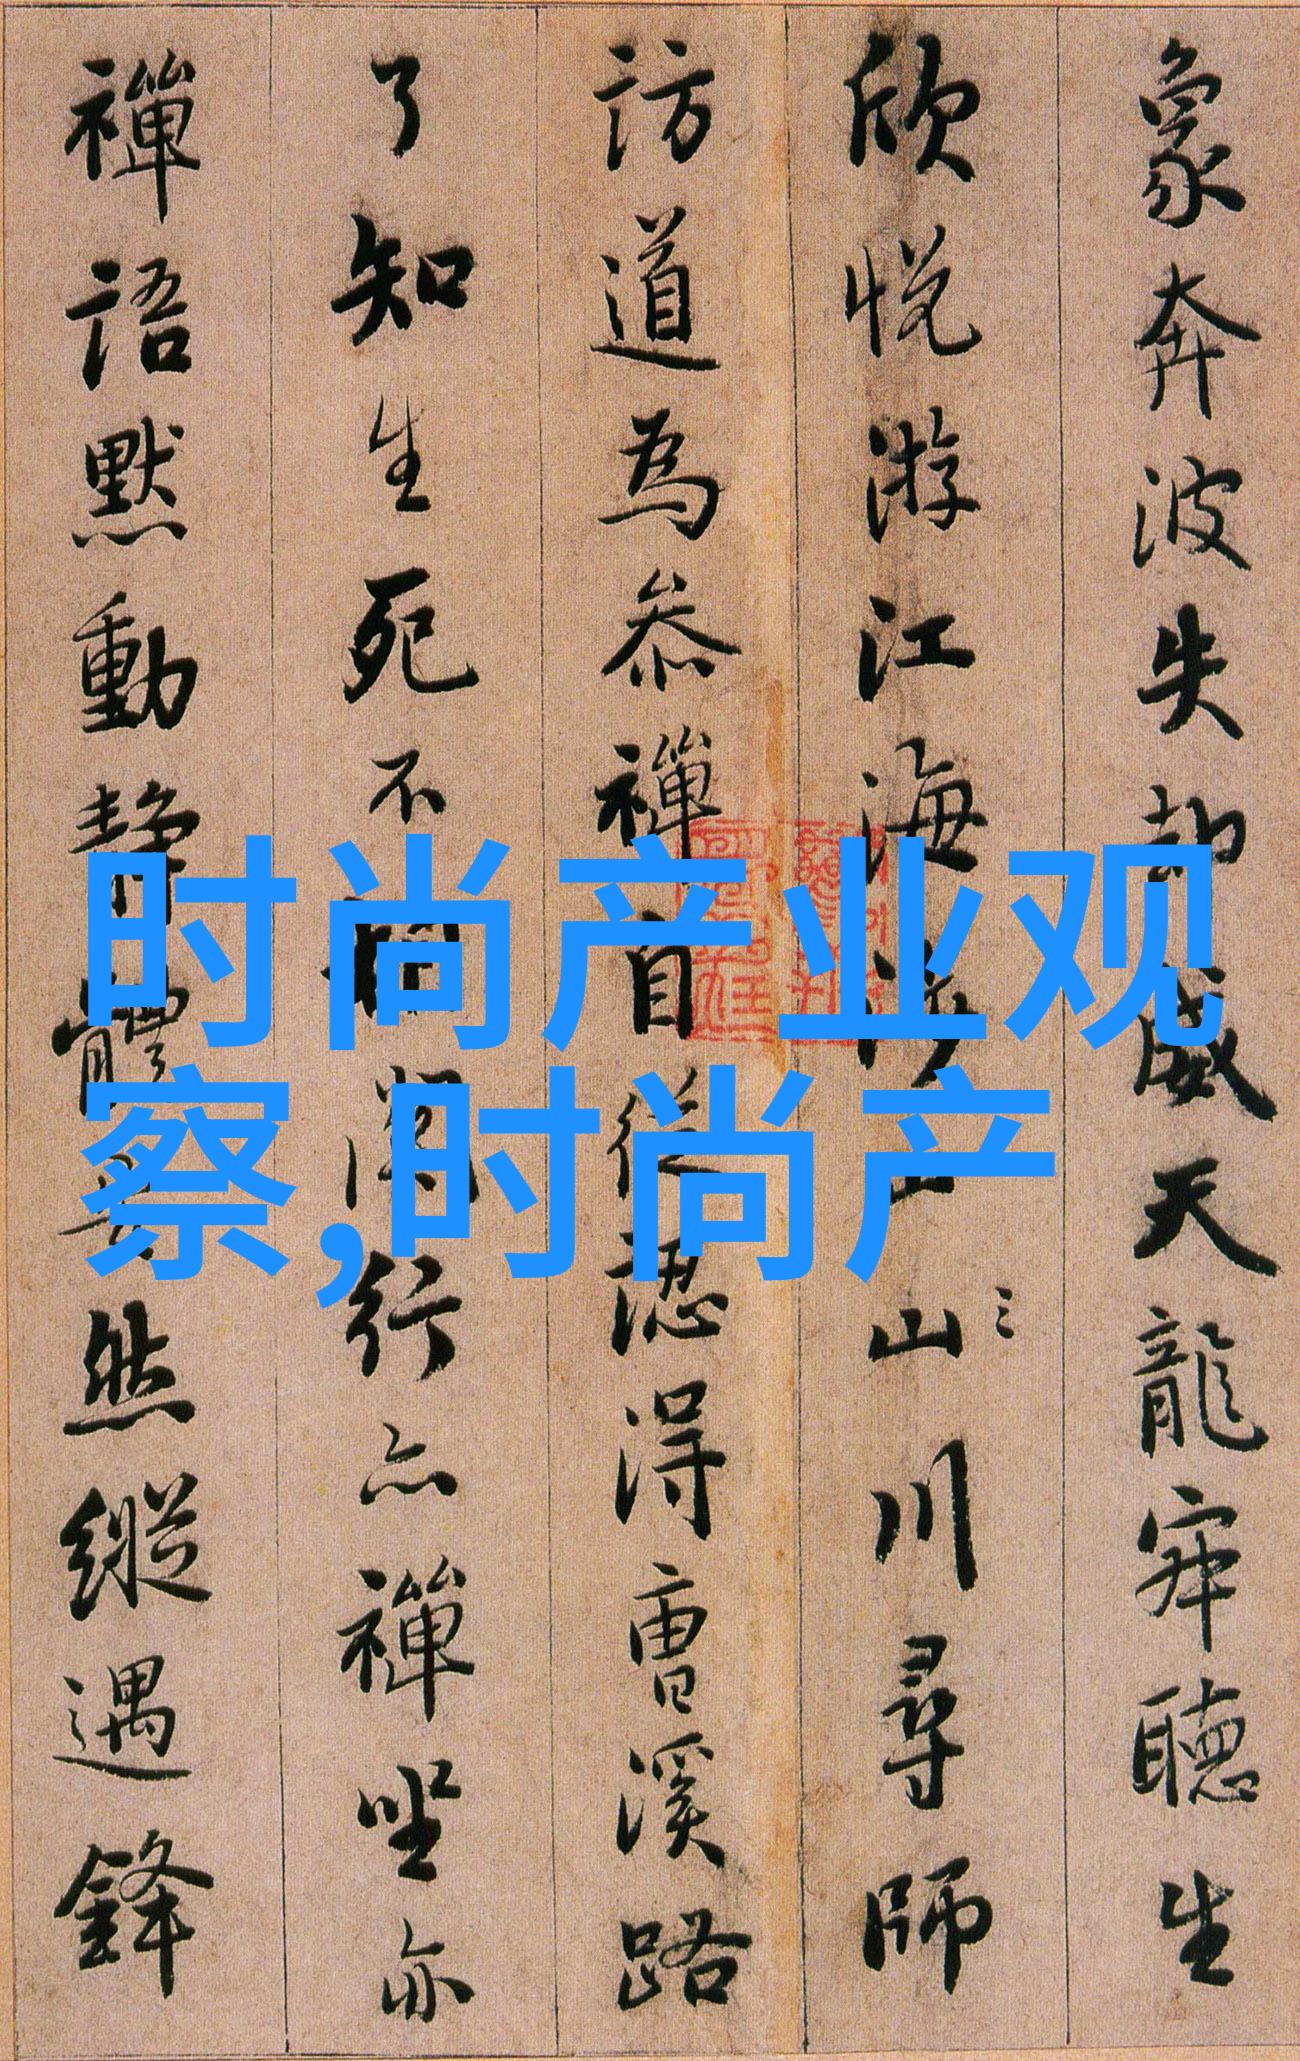 象奔波失却威天龍寂聽生
欣悅游江海涉山川尋師
訪道為參禪自從認得曹溪路
了知生死不相關行亦禪坐亦
禪語默動靜體安然縱遇鋒
时尚产业观
察,时尚产